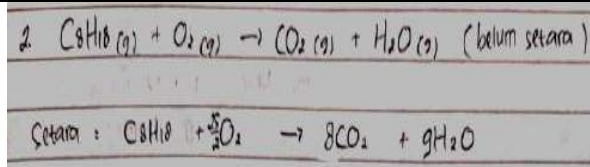 2. C8H18 (g) + O2 (g) → CO2 (g) + H2O (g) (belum setara)
Setara : C8H18 + 25/2 O2 → 8CO2 + 9H2O